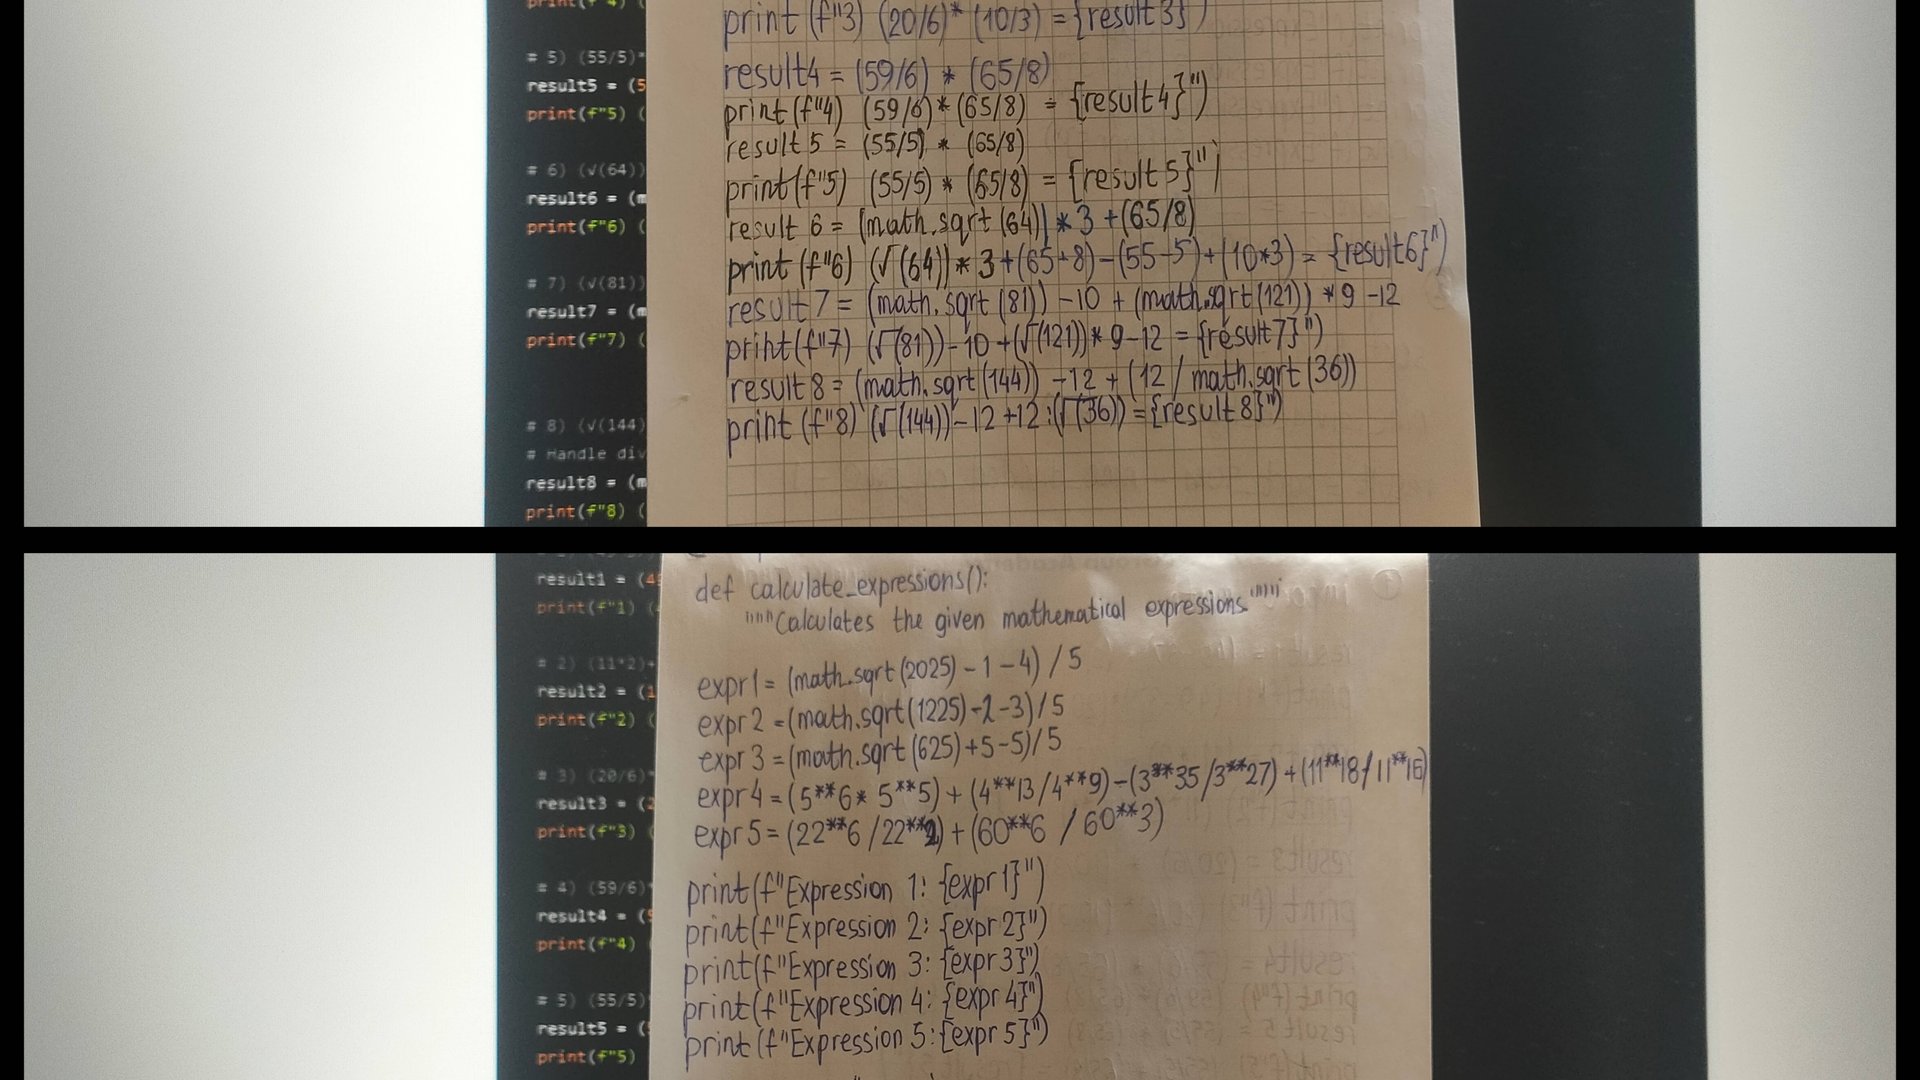 print(f"4) (
# 5) (55/5)*
result5 = (5
print(f"5) (
# 6) (√(64))
result6 = (m
print(f"6) (
# 7) (√(81))
result7 = (m
print(f"7) (
# 8) (√(144)
# Handle div
result8 = (m
print(f"8) (
print (f"3) (20/6)* (10/3) = {result 3}")
result4 = (59/6) * (65/8)
print (f"4) (59/6)* (65/8) = {result 4}")
result 5 = (55/5) * (65/8)
print(f"5) (55/5) * (65/8) = {result 5}")
result 6 = (math.sqrt (64)) * 3 + (65/8)
print (f"6) (√(64))* 3 + (65÷8) - (55-5) + (10*3) = {result6}")
result 7 = (math.sqrt (81)) -10 + (math.sqrt (121)) * 9 -12
print(f"7) (√(81)) - 10 + (√(121))* 9-12 = {result7}")
result 8 = (math.sqrt (144)) -12 + (12 / math.sqrt (36))
print (f"8) (√(144)) - 12 +12:(√(36)) = {result 8}")
result1 = (4
print(f"1) (
# 2) (11*2)+
result2 = (1
print(f"2) (
# 3) (20/6)*
result3 = (2
print(f"3) (
# 4) (59/6)*
result4 = (5
print(f"4) (
# 5) (55/5)
result5 = (
print(f"5)
def calculate_expressions():
"""Calculates the given mathematical expressions."""
expr1 = (math.sqrt (2025) - 1 - 4) / 5
expr 2 = (math.sqrt (1225) -2 -3)/5
expr 3 = (math.sqrt (625) +5 -5)/5
expr 4 = (5**6 * 5**5) + (4**13 /4**9) - (3**35 /3**27) + (11**18/11**16)
expr 5 = (22**6 /22**2) + (60**6 / 60**3)
print(f"Expression 1: {expr 1}")
print(f"Expression 2: {expr 2}")
print(f"Expression 3: {expr 3}")
print(f"Expression 4: {expr 4}")
print (f"Expression 5: {expr 5}")